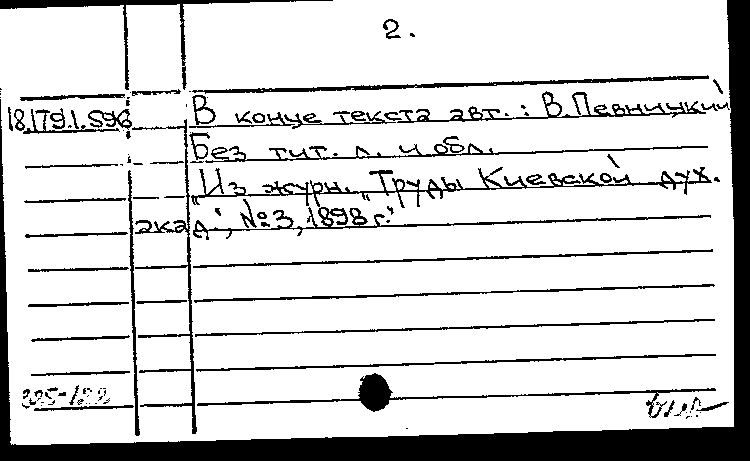 2.
18.179.1.596 В конце текста авт.: В.Певницкий
Без тит. л. и обл.
„Из журн. „Труды Киевской дух.
акад.", №3, 1898 г."